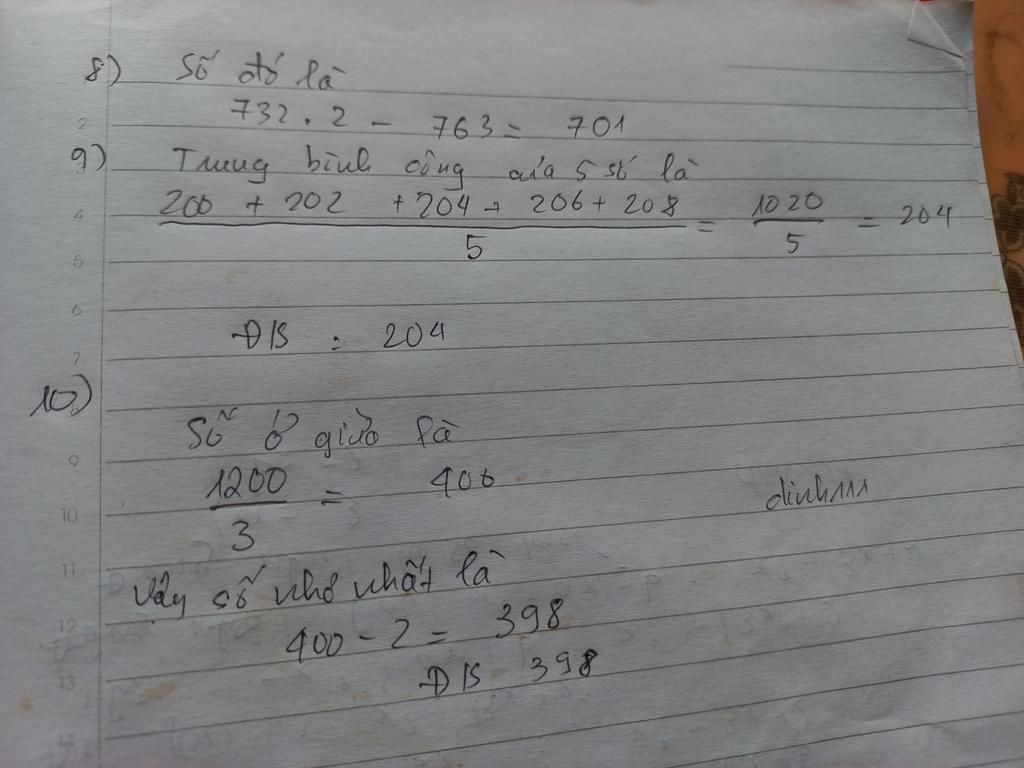 8) Số đó là
732 . 2 - 763 = 701
9) Trung bình cộng của 5 số là
200 + 202 + 204 + 206 + 208 / 5 = 1020 / 5 = 204
Đ/S : 204
10)
Số ở giữa là
1200 / 3 = 400
dinh111
Vậy số nhỏ nhất là
400 - 2 = 398
Đ/S 398